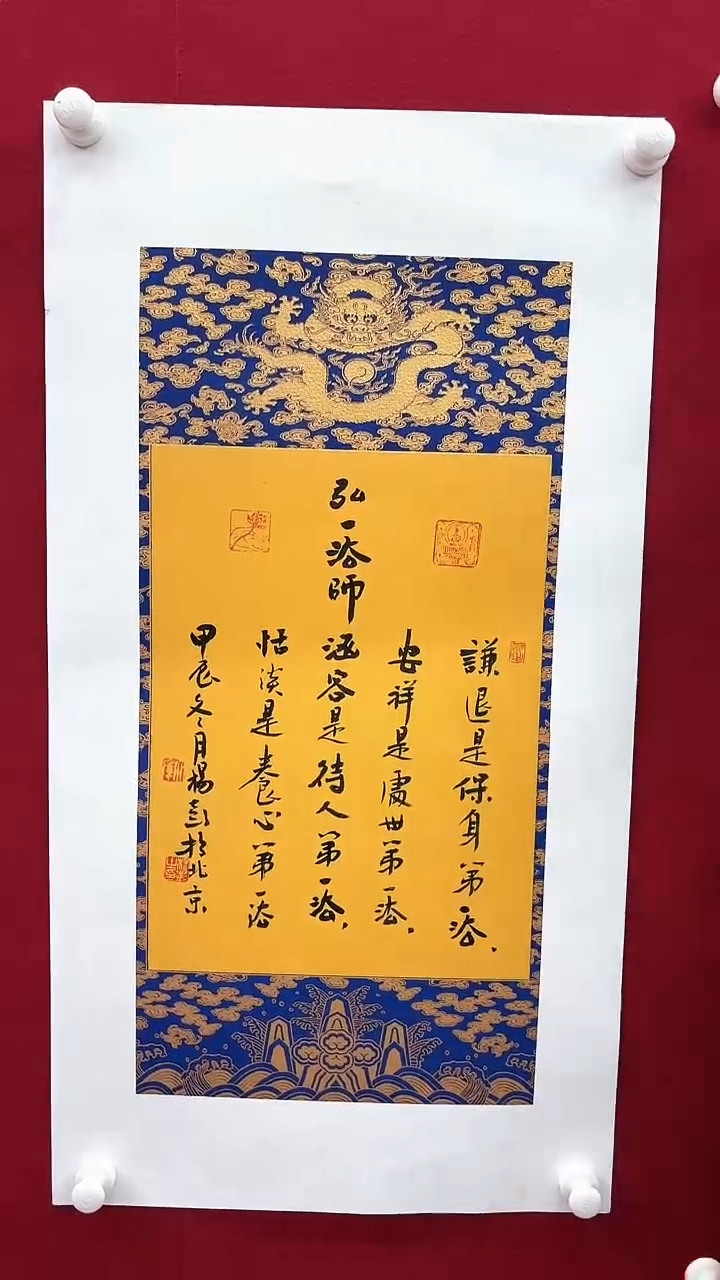 弘一法師
謙退是保身第一法、
安祥是處世第一法、
涵容是待人第一法、
恬淡是養心第一法
甲辰冬月楊彭於北京